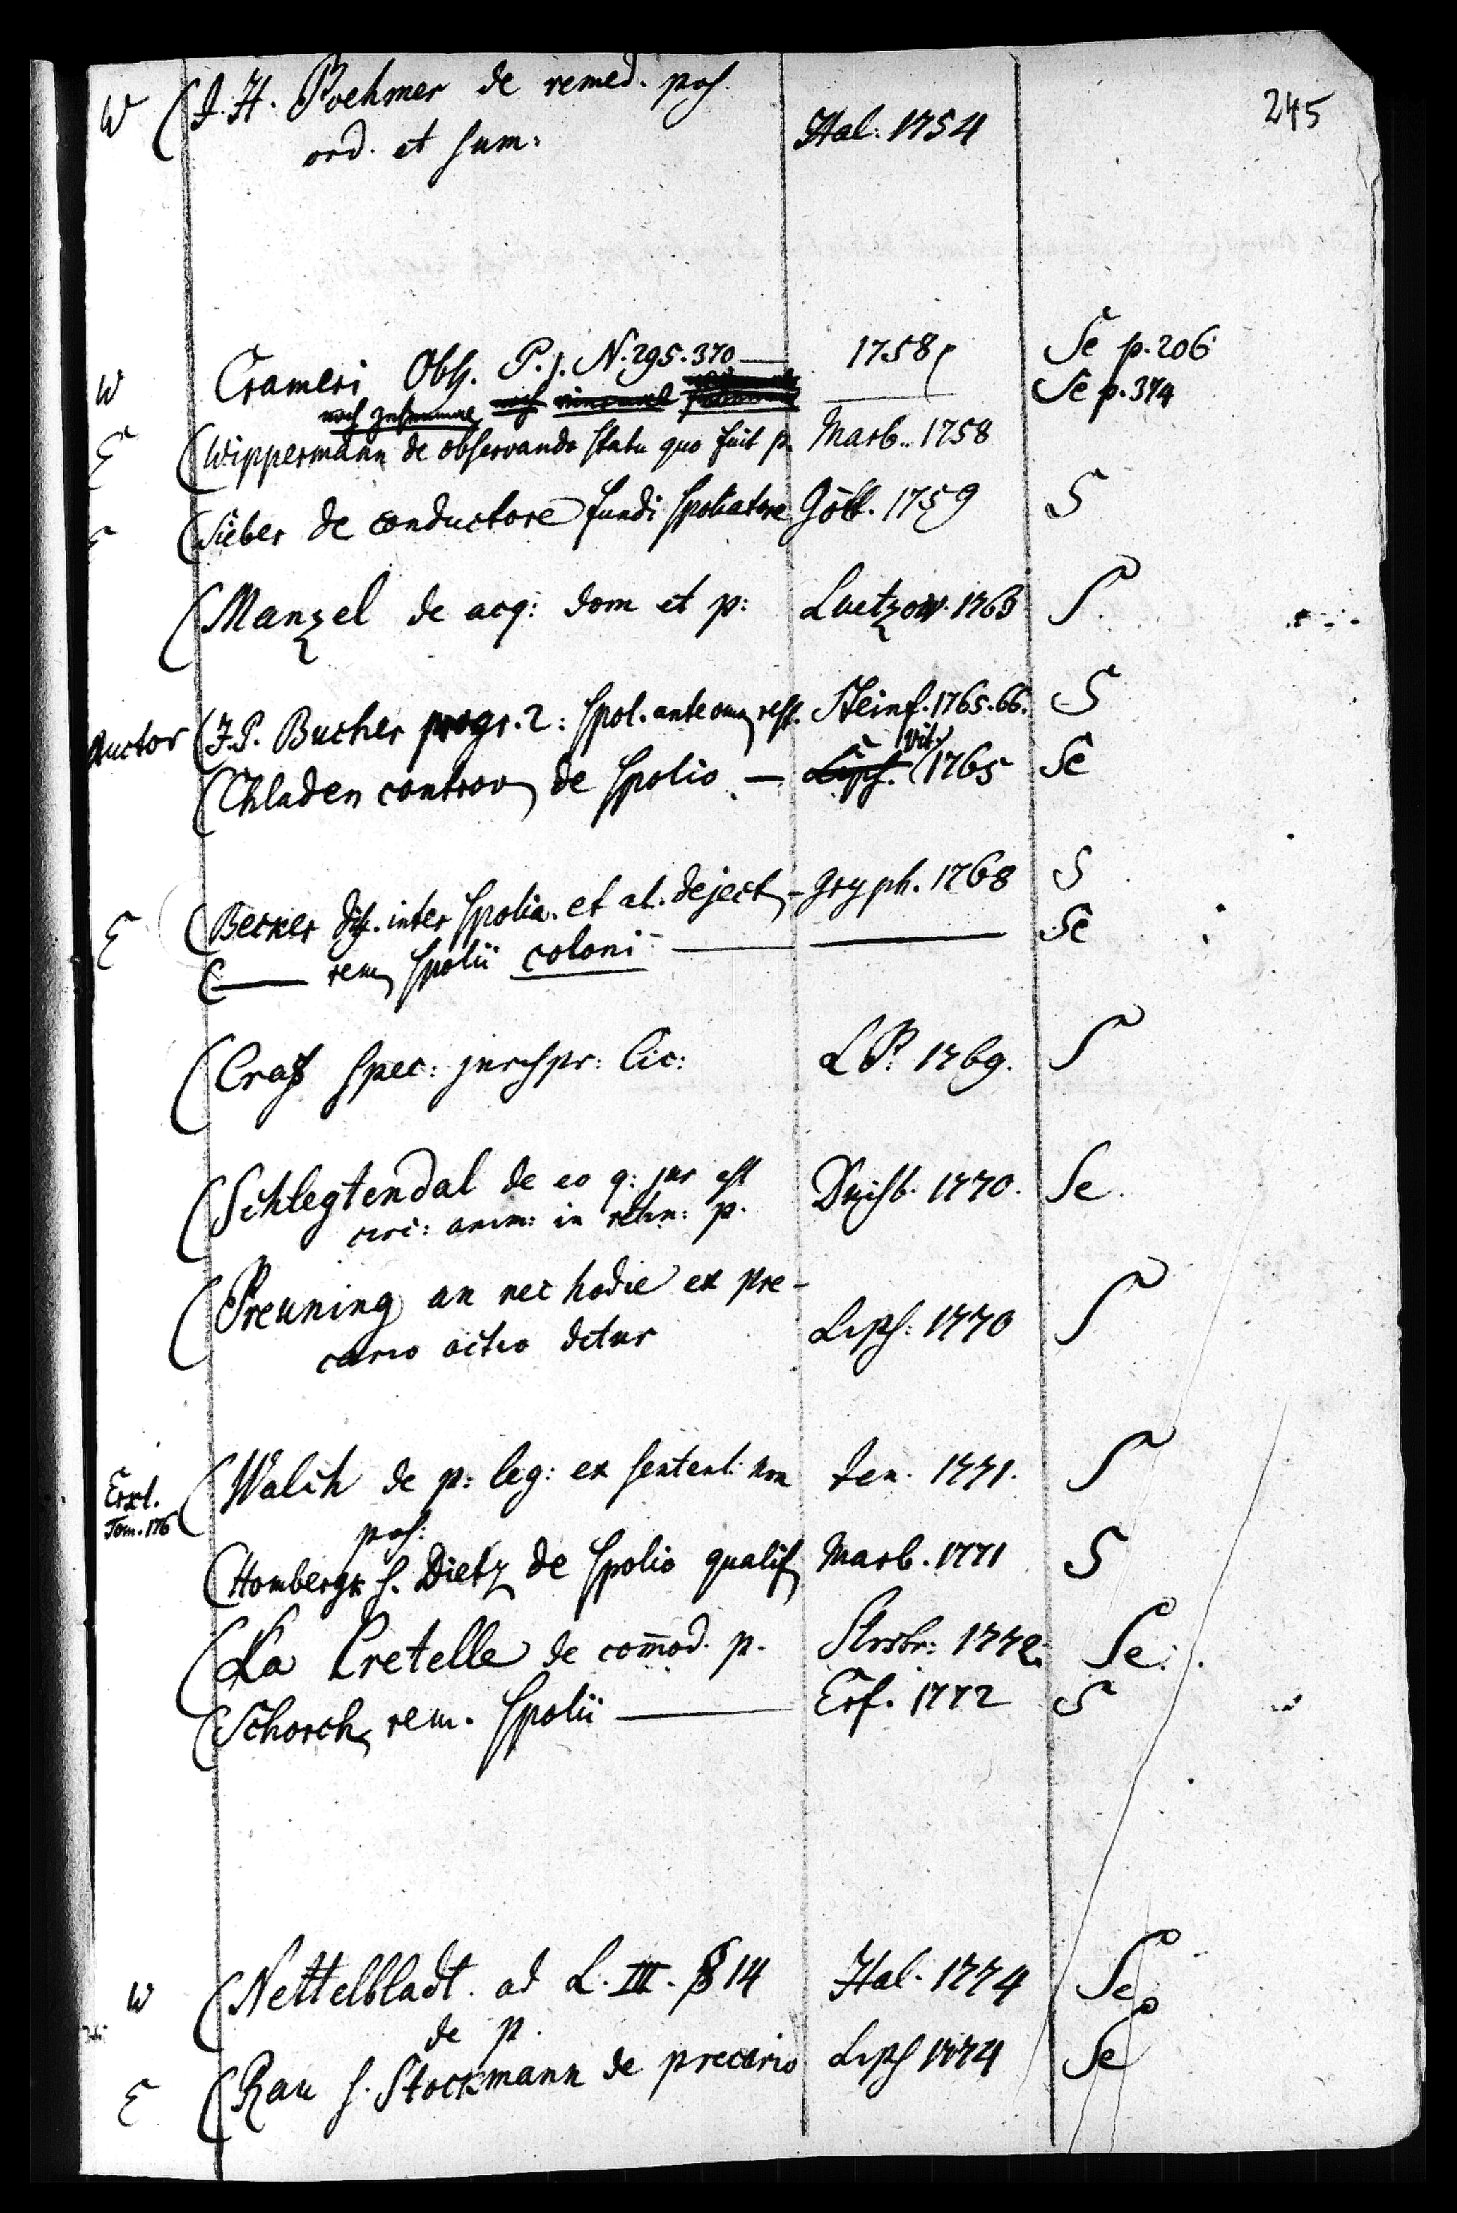 245
W (J. H. Boehmer de remed. poss.
ord. et sum: Hal: 1754
W Crameri Obss. P. j. N. 295. 370 — 1758 Se p. 206
Se p. 374
noch zusammen
E (Wippermann de observando statu quo fuit p. Marb. 1758
E (Sieber de conductore fundi spoliatore Gött. 1759 S
(Manzel de acq: dom et p: Luetzow. 1763 S.
Auctor (J. P. Bucher progr. 2: spol. ante omn rest. Steinf. 1765.66. S
(Chladen controv de spolio — Lips. Vit. 1765 Se
E (Becker diff. inter spolia. et al. deject — Gryph. 1768 S
(— rem spolii coloni — — Se
(Crass spec: jurispr: Cic: LP. 1769. S
(Schlegtendal de eo q: jur est Duisb. 1770. Se.
circ: anim: in retin: p.
(Preuning an nec hodie ex pre-
cario actio detur Lips: 1770 S
Erxl.
Tom. 176
(Walch de p: leg: ex sentent: non Jen. 1771. S
poss:
(Hombergk s. Dietz de spolio qualif Marb. 1771 S
(La Cretelle de com̄od. p. Strsbr: 1772. Se.
(Schorch rem. spolii — Erf. 1772 S
W (Nettelbladt. ad L. III. § 14 Hal. 1774 Se
de p.
E (Rau s. Stockmann de precario Lips 1774 Se